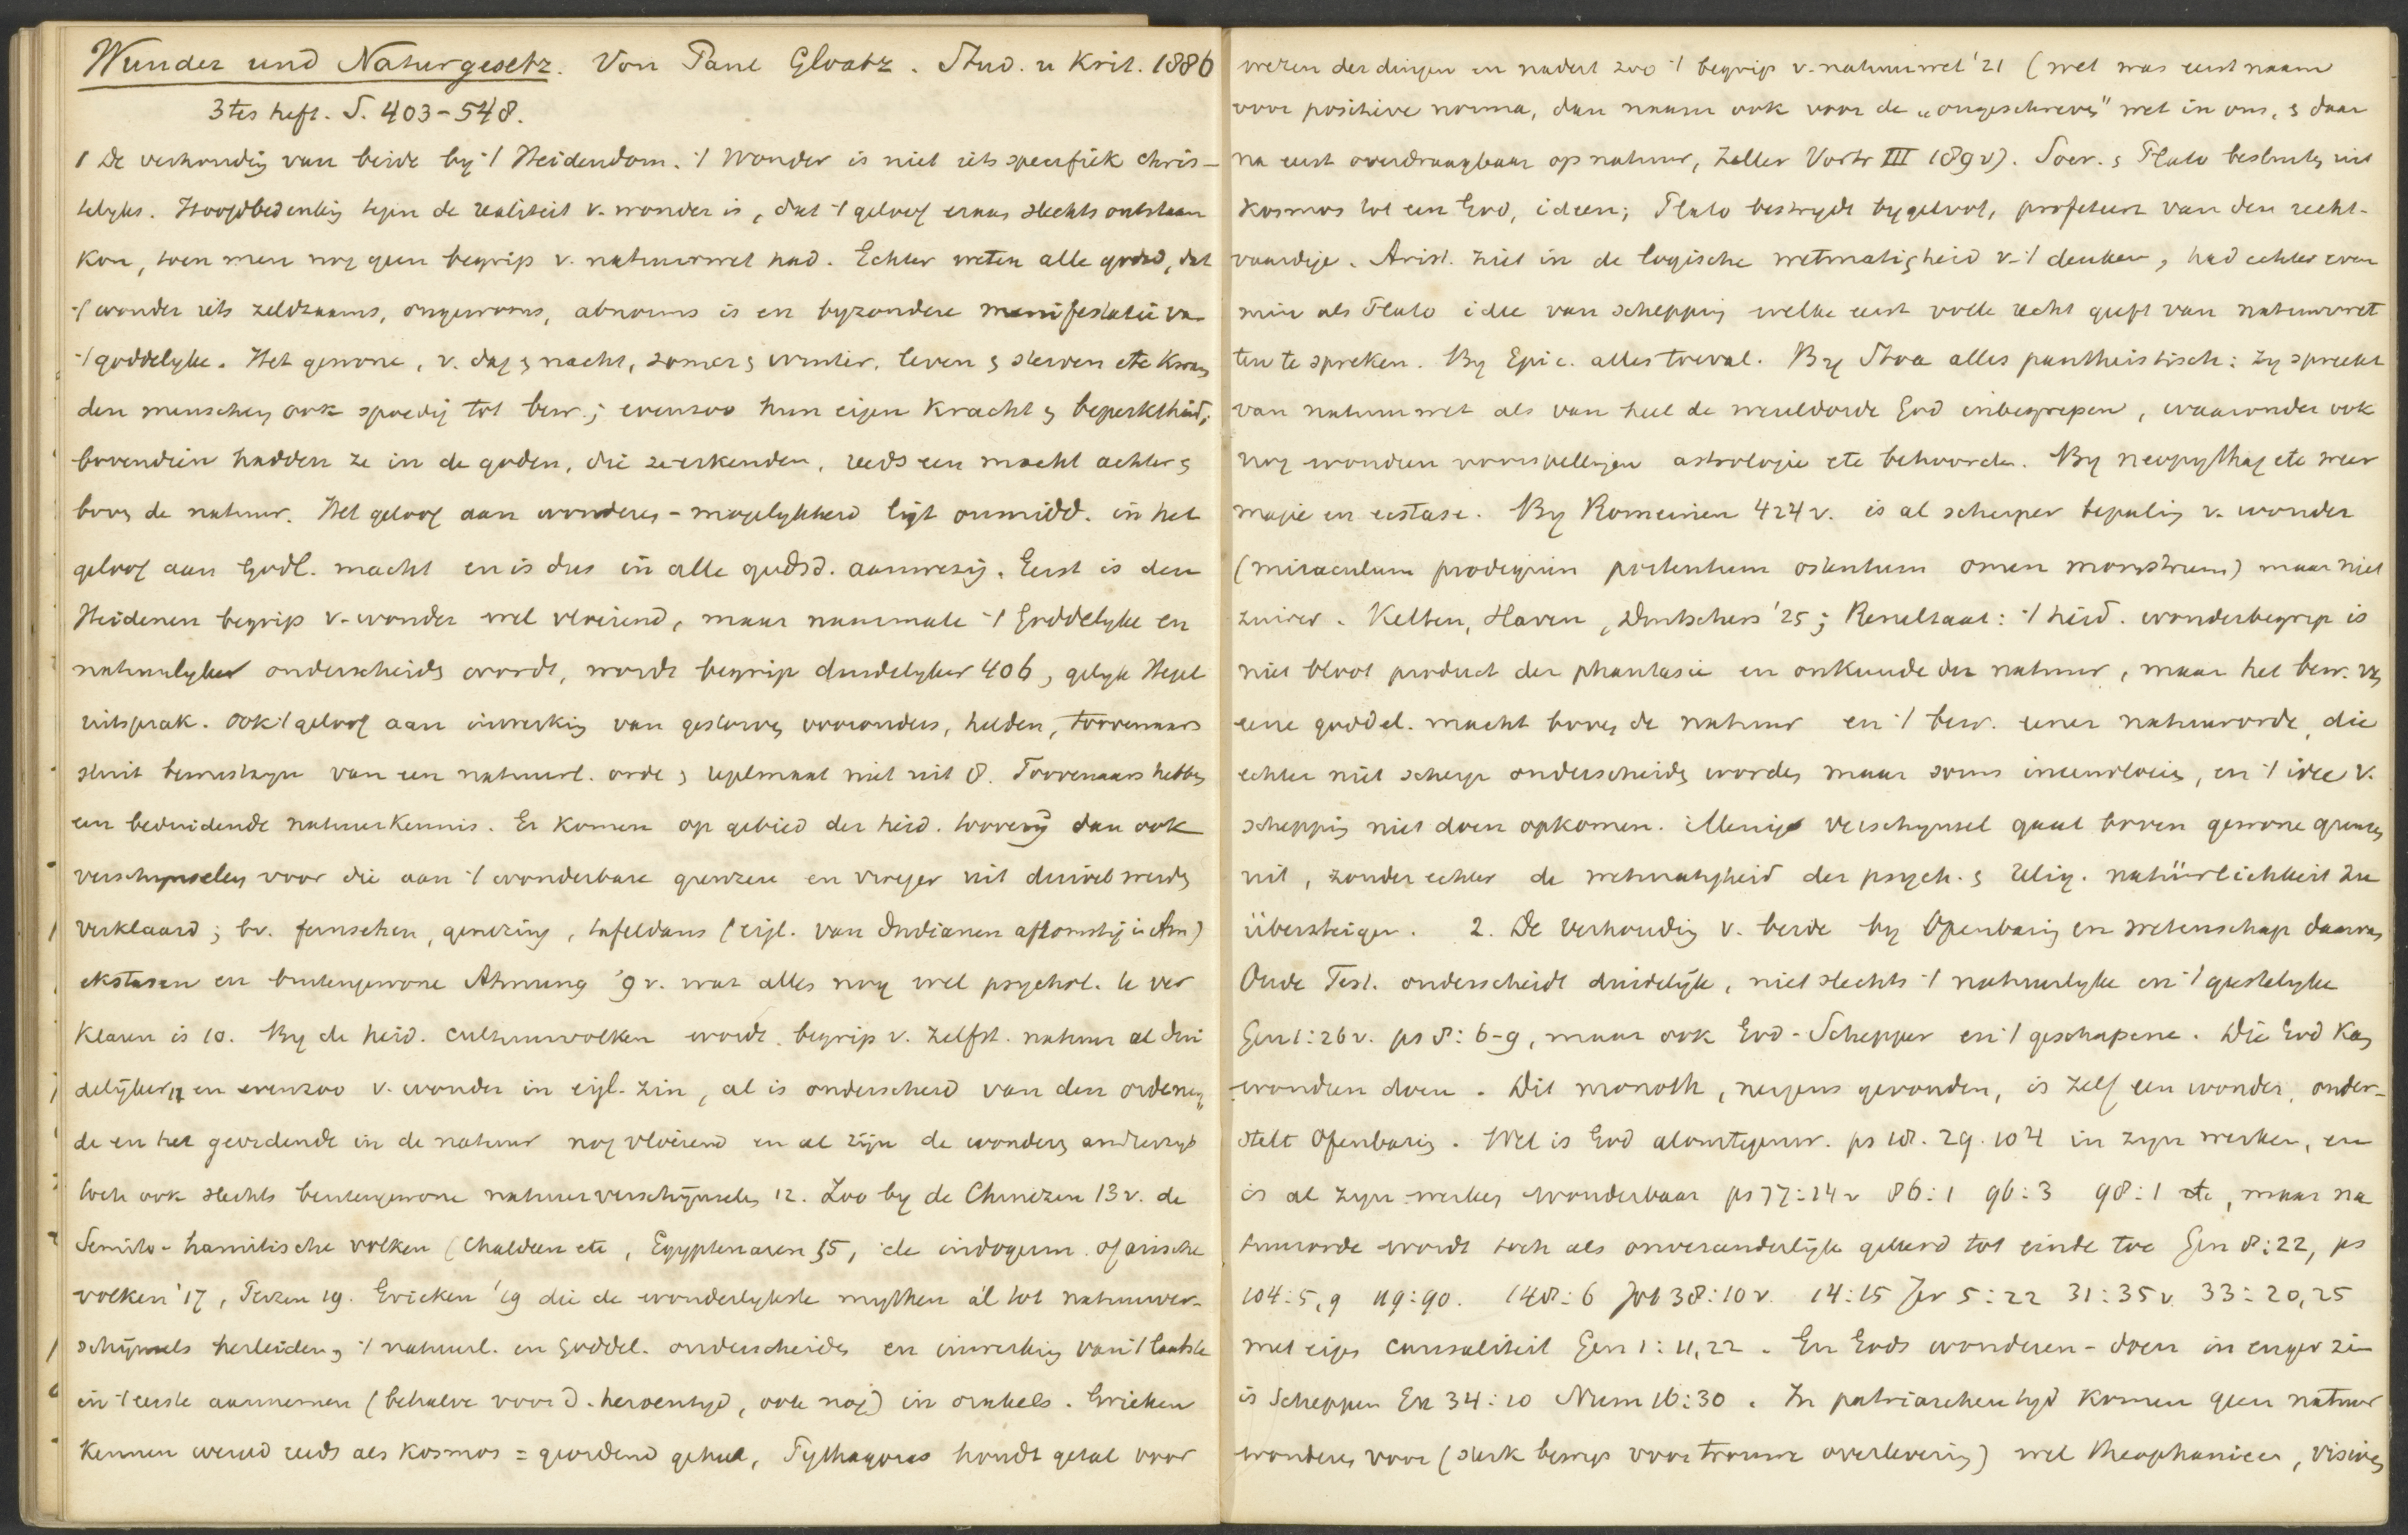 Wunder und Naturgesetz. Von Paul Gloatz. Stud. u Krit. 1886
3tes heft. S. 403-548.
1 De verhoudig van beide by 't Heidendom. 't Wonder is niet iets specifiek chris-
telyks. Hoofdbedenkig tegen de realiteit v. wonder is, dat 't geloof eraan slechts ontstaan
kon, toen men nog geen begrip v. natuurwet had. Echter weten alle godsd, dat
't wonder iets zeldzaams, ongewoons, abnorms is en byzondere manifestatie van
't goddelyke. Het gewone, v. dag & nacht, zomer & winter, leven & sterven etc kwam
den menschen ook spoedig tot bew.; evenzoo hun eigen kracht & beperktheid;
bovendien hadden ze in de goden, die ze erkenden, reeds een macht achter &
boven de natuur. Het geloof aan wonderen-mogelykheid ligt onmidd. in het
geloof aan Godl. macht en is dus in alle godsd. aanwezig. Eerst is den
Heidenen begrip v. wonder wel vloeiend, maar naarmate 't Goddelyke en
natuurlyke onderscheiden wordt, wordt begrip duidelyker 406, gelyk Hegel
uitsprak. Ook 't geloof aan inwerking van gestorven voorouders, helden, toovenaars
sluit bewustzyn van een natuurl. orde & regelmaat niet uit 8. Toovenaars hebben
een beduidende natuurkennis. Er komen op gebied der heid. toovery dan ook
verschynselen voor die aan 't wonderbare grenzen en vroeger uit duivel werden
verklaard; bv. fernsehen, genezing, tafeldans (eigl. van Indianen afkomstig in Am)
ekstasen en buitengewone Ahnung '9 v. wat alles nog wel psychol. te ver
klaren is 10. By de heid. cultuurvolken wordt begrip v. zelfst. natuur al dui
delijker 11 en evenzoo v. wonder in eigl. zin, al is onderscheid van den ordenen
de en het geordende in de natuur nog vloeiend en al zijn de wonders anderzyds
toch ook slechts buitengewone natuurverschijnselen 12. Zoo by de Chineezen 13 v. de
Semito-hamitische volken (Chaldeen etc, Egyptenaren 15, de indogerm. of arische
volken '17, Perzen 19. Grieken '19 die de wonderlykste mythen al tot natuurver-
schijnsels herleiden & 't natuurl. en Goddel. onderscheiden en inwerking van 't laatste
in 't eerste aannemen (behalve voor d. heroentyd, ook nog) in orakels. Grieken
kennen wereld reeds als kosmos = geordend geheel, Pythagoras houdt getal voor
wezen der dingen en nadert zoo 't begrip v. natuurwet '21 (wet was eerst naam
voor positieve norma, dan naam ook voor de „ongeschreven" wet in ons, & daar
na eerst overdraagbaar op natuur, Zeller Vortr III 189 v). Socr. & Plato besluiten uit
kosmos tot een God, ideen; Plato bestrydt bygeloof, profeteert van den recht-
vaardige. Arist. ziet in de logische wetmatigheid v. 't denken, had echter even
min als Plato idee van schepping welke eerst volle recht geeft van natuurwet
ten te spreken. By Epic. alles toeval. By Stoa alles pantheistisch: zy spreekt
van natuurwet als van heel de wereldorde God inbegrepen, waaronder ook
nog wonderen voorspellingen astrologie etc behoorden. By neopythag etc weer
magie en ecstase. By Romeinen 424 v. is al scherper bepaling v. wonder
(miraculum prodigium portentum ostentum omen monstrum) maar niet
zuiver. Kelten, Slaven, Duitschers '25; Resultaat: 't heid. wonderbegrip is
niet bloot product der phantasie en onkunde der natuur, maar het bew. van
eene goddel. macht boven de natuur en 't bew. eener natuurorde, die
echter niet scherp onderscheiden worden maar soms ineenvloeien, en 't idee v.
schepping niet doen opkomen. Menige verschynsel gaat boven gewone grenzen
uit, zonder echter de wetmatigheid der psych. & relig. natürlichkeit zu
übersteigen. 2. De verhoudig v. beide by Openbaring en wetenschap daarvan
Oude Test. onderscheidt duidelijk, niet slechts 't natuurlyke en 't geestelyke
Gen 1:26 v. ps 8:6-9, maar ook God-Schepper en 't geschapene. Die God kan
wonderen doen. Dit monoth, nergens gevonden, is zelf een wonder, onder-
stelt Openbaring. Wel is God alomtegenw. ps 18. 29. 104 in zyn werken, en
is al zyn werken wonderbaar ps 77:14 v 86:1 96:3 98:1 etc, maar na
tuurorde wordt toch als onveranderlijk geleerd tot einde toe Gen 8:22, ps
104:5,9 119:90. 148:6 Job 38:10 v. 14:15 Jer 5:22 31:35 v. 33:20,25
met eigen causaliteit Gen 1:11,22. En Gods wonderen-doen in enger zin
is Scheppen Ex 34:10 Num 16:30. In patriarchentyd komen geen natuur
wonderen voor (sterk bewys voor trouwe overlevering) wel theophanieen, visioen